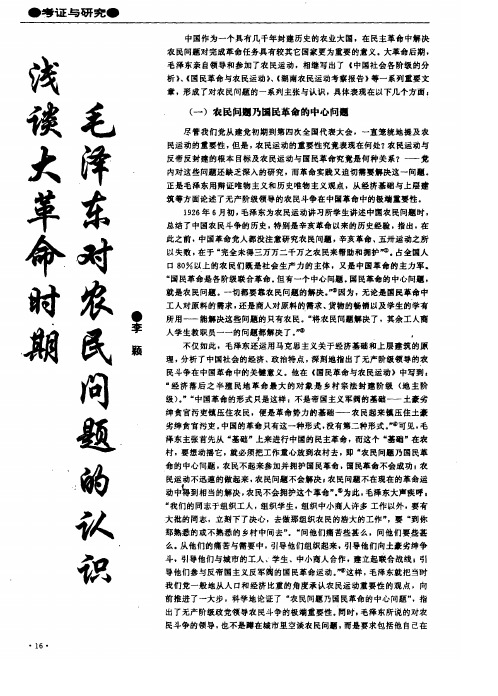 ●考证与研究●
浅谈大革命时期
毛泽东对农民问题的认识
●李颖
中国作为一个具有几千年封建历史的农业大国，在民主革命中解决
农民问题对完成革命任务具有较其它国家更为重要的意义。大革命后期，
毛泽东亲自领导和参加了农民运动，相继写出了《中国社会各阶级的分
析》、《国民革命与农民运动》、《湖南农民运动考察报告》等一系列重要文
章，形成了对农民问题的一系列主张与认识，具体表现在以下几个方面：
(一) 农民问题乃国民革命的中心问题
尽管我们党从建党初期到第四次全国代表大会，一直笼统地提及农
民运动的重要性，但是，农民运动的重要性究竟表现在何处？农民运动与
反帝反封建的根本目标及农民运动与国民革命究竟是何种关系？——党
内对这些问题还缺乏深入的研究，而革命实践又迫切需要解决这一问题。
正是毛泽东用辩证唯物主义和历史唯物主义观点，从经济基础与上层建
筑等方面论述了无产阶级领导的农民斗争在中国革命中的极端重要性。
1926年6月初，毛泽东为农民运动讲习所学生讲述中国农民问题时，
总结了中国农民斗争的历史，特别是辛亥革命以来的历史经验，指出，在
此之前，中国革命党人都没注意研究农民问题，辛亥革命、五卅运动之所
以失败，在于“完全未得三万万二千万之农民来帮助和拥护”①。占全国人
口80%以上的农民们既是社会生产力的主体，又是中国革命的主力军。
“国民革命是各阶级联合革命，但有一个中心问题。国民革命的中心问题，
就是农民问题。一切都要靠农民问题的解决。”②因为，无论是国民革命中
工人对原料的需求，还是商人对原料的需求、货物的畅销以及学生的学有
所用——能解决这些问题的只有农民。“将农民问题解决了，其余工人商
人学生教职员一一的问题都解决了。”③
不仅如此，毛泽东还运用马克思主义关于经济基础和上层建筑的原
理，分析了中国社会的经济、政治特点，深刻地指出了无产阶级领导的农
民斗争在中国革命中的关键意义。他在《国民革命与农民运动》中写到：
“经济落后之半殖民地革命最大的对象是乡村宗法封建阶级（地主阶
级）。”“中国革命的形式只是这样：不是帝国主义军阀的基础——土豪劣
绅贪官污吏镇压住农民，便是革命势力的基础——农民起来镇压住土豪
劣绅贪官污吏。中国的革命只有这一种形式，没有第二种形式。”④可见，毛
泽东主张首先从“基础”上来进行中国的民主革命，而这个“基础”在农
村，要想动摇它，就必须把工作重心放到农村去，即“农民问题乃国民革
命的中心问题，农民不起来参加并拥护国民革命，国民革命不会成功；农
民运动不迅速的做起来，农民问题不会解决；农民问题不在现在的革命运
动中得到相当的解决，农民不会拥护这个革命”。⑤为此，毛泽东大声疾呼：
“我们的同志于组织工人，组织学生，组织中小商人许多工作以外，要有
大批的同志，立刻下了决心，去做那组织农民的浩大的工作”，要“到你
那熟悉的或不熟悉的乡村中间去”，“问他们痛苦些甚么，问他们要些甚
么。从他们的痛苦与需要中，引导他们组织起来，引导他们向土豪劣绅争
斗，引导他们与城市的工人、学生、中小商人合作，建立起联合战线；引
导他们参与反帝国主义反军阀的国民革命运动。”⑥这样，毛泽东就把当时
我们党一般地从人口和经济比重的角度承认农民运动重要性的观点，向
前推进了一大步，科学地论证了“农民问题乃国民革命的中心问题”，指
出了无产阶级政党领导农民斗争的极端重要性。同时，毛泽东所说的对农
民斗争的领导，也不是蹲在城市里空谈农民问题，而是要求包括他自己在
·16·